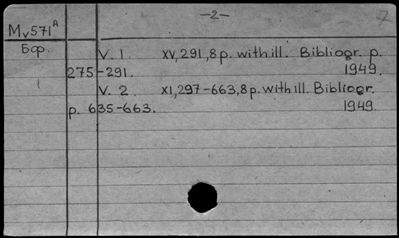 —2—
Mv571ᴬ
Бор.
V. 1. XV, 291, 8 p. with ill. Bibliogr. p.
275–291. 1949.
V. 2 XI, 297–663, 8 p. with ill. Bibliogr.
p. 635–663. 1949.